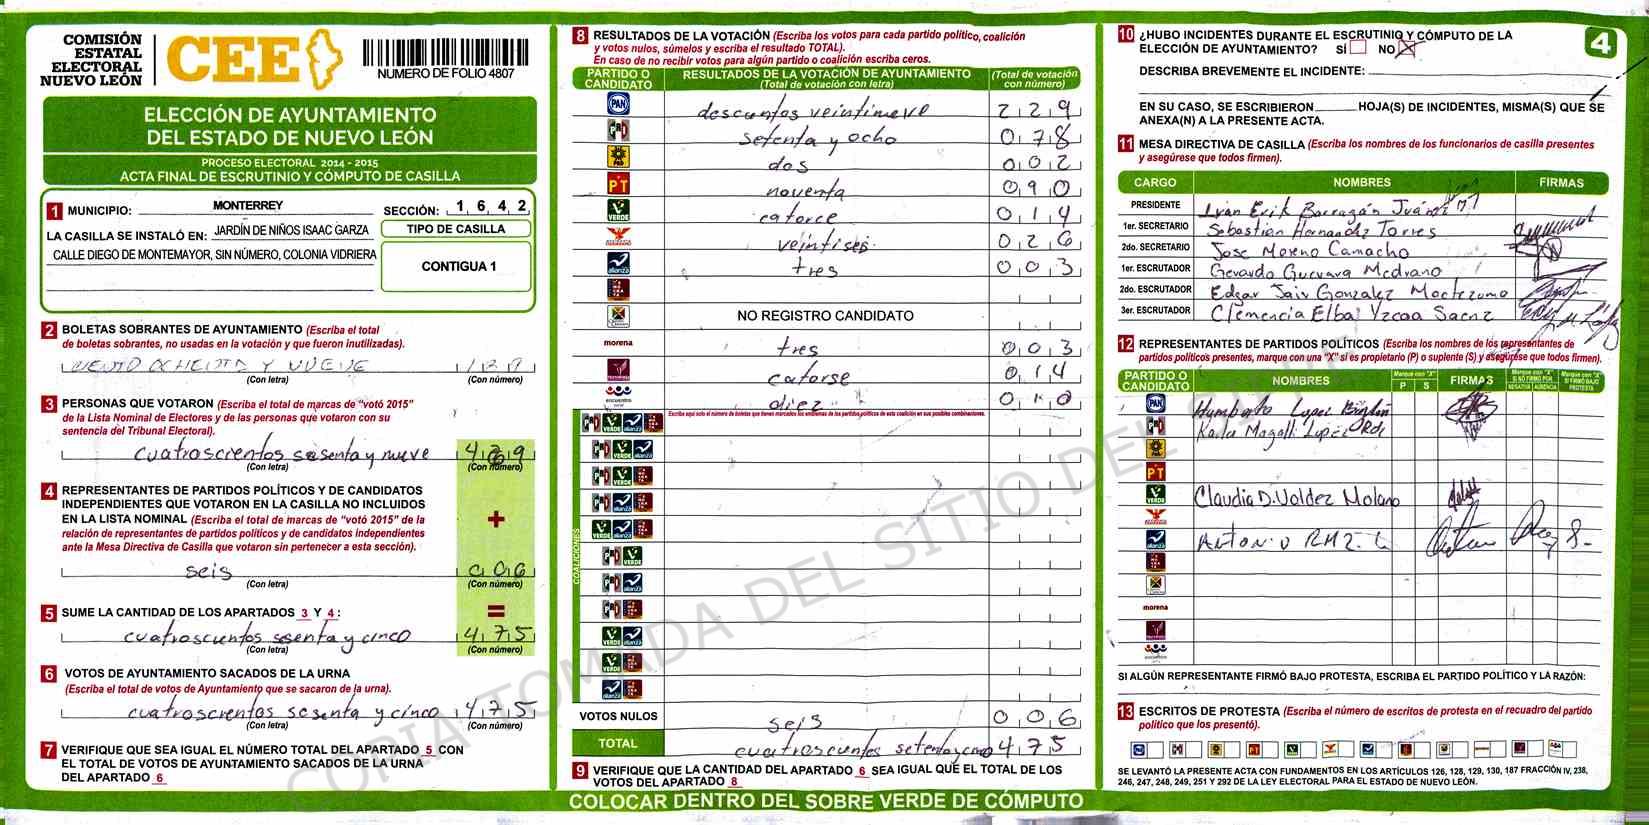 COMISIÓN
ESTATAL
ELECTORAL
NUEVO LEÓN
CEE
NUMERO DE FOLIO 4807
ELECCIÓN DE AYUNTAMIENTO
DEL ESTADO DE NUEVO LEÓN
PROCESO ELECTORAL 2014 - 2015
ACTA FINAL DE ESCRUTINIO Y CÓMPUTO DE CASILLA
1 MUNICIPIO: MONTERREY SECCIÓN: 1 6 4 2
LA CASILLA SE INSTALÓ EN: JARDÍN DE NIÑOS ISAAC GARZA
CALLE DIEGO DE MONTEMAYOR, SIN NÚMERO, COLONIA VIDRIERA
TIPO DE CASILLA
CONTIGUA 1
2 BOLETAS SOBRANTES DE AYUNTAMIENTO (Escriba el total
de boletas sobrantes, no usadas en la votación y que fueron inutilizadas).
CIENTO OCHENTA Y NUEVE
(Con letra) (Con número)
3 PERSONAS QUE VOTARON (Escriba el total de marcas de "votó 2015"
de la Lista Nominal de Electores y de las personas que votaron con su
sentencia del Tribunal Electoral).
cuatroscientos sesenta y nueve 469
(Con letra) (Con número)
4 REPRESENTANTES DE PARTIDOS POLÍTICOS Y DE CANDIDATOS
INDEPENDIENTES QUE VOTARON EN LA CASILLA NO INCLUIDOS
EN LA LISTA NOMINAL (Escriba el total de marcas de "votó 2015" de la
relación de representantes de partidos políticos y de candidatos independientes
ante la Mesa Directiva de Casilla que votaron sin pertenecer a esta sección).
+
seis 006
(Con letra) (Con número)
5 SUME LA CANTIDAD DE LOS APARTADOS 3 Y 4: =
cuatroscientos sesenta y cinco 475
(Con letra) (Con número)
6 VOTOS DE AYUNTAMIENTO SACADOS DE LA URNA
(Escriba el total de votos de Ayuntamiento que se sacaron de la urna).
cuatroscientos sesenta y cinco 475
(Con letra) (Con número)
7 VERIFIQUE QUE SEA IGUAL EL NÚMERO TOTAL DEL APARTADO 5 CON
EL TOTAL DE VOTOS DE AYUNTAMIENTO SACADOS DE LA URNA
DEL APARTADO 6
8 RESULTADOS DE LA VOTACIÓN (Escriba los votos para cada partido político, coalición
y votos nulos, súmelos y escriba el resultado TOTAL).
En caso de no recibir votos para algún partido o coalición escriba ceros.
PARTIDO O CANDIDATO RESULTADOS DE LA VOTACIÓN DE AYUNTAMIENTO (Total de votación con letra) (Total de votación con número)
PAN descuentos veintinueve 229
PRI setenta y ocho 078
PRD dos 002
PT noventa 090
VERDE catorce 014
veintiseis 026
alianza tres 003
NO REGISTRO CANDIDATO
morena tres 003
catorse 014
encuentro diez 010
Escriba aquí solo el número de boletas que tienen marcados los emblemas de los partidos políticos de esta coalición en sus posibles combinaciones.
COALICIONES
VOTOS NULOS seis 006
TOTAL cuatroscientos setenta y cinco 475
9 VERIFIQUE QUE LA CANTIDAD DEL APARTADO 6 SEA IGUAL QUE EL TOTAL DE LOS
VOTOS DEL APARTADO 8
COLOCAR DENTRO DEL SOBRE VERDE DE CÓMPUTO
4
10 ¿HUBO INCIDENTES DURANTE EL ESCRUTINIO Y CÓMPUTO DE LA
ELECCIÓN DE AYUNTAMIENTO? SÍ NO X
DESCRIBA BREVEMENTE EL INCIDENTE:
EN SU CASO, SE ESCRIBIERON HOJA(S) DE INCIDENTES, MISMA(S) QUE SE
ANEXA(N) A LA PRESENTE ACTA.
11 MESA DIRECTIVA DE CASILLA (Escriba los nombres de los funcionarios de casilla presentes
y asegúrese que todos firmen).
CARGO NOMBRES FIRMAS
PRESIDENTE Ivan Erik Barragán Juárez
1er. SECRETARIO Sebastian Hernandez Torres
2do. SECRETARIO Jose Moreno Camacho
1er. ESCRUTADOR Gerardo Guevara Medrano
2do. ESCRUTADOR Edgar Jair Gonzalez Moctezuma
3er. ESCRUTADOR Clemencia Elba Yzcoa Saenz
12 REPRESENTANTES DE PARTIDOS POLÍTICOS (Escriba los nombres de los representantes de
partidos políticos presentes, marque con una "X" si es propietario (P) o suplente (S) y asegúrese que todos firmen).
PARTIDO O CANDIDATO NOMBRES Marque con "X" P S FIRMAS Marque con "X" SI NO FIRMÓ POR NEGATIVA AUSENCIA Marque con "X" SI FIRMÓ BAJO PROTESTA
PAN Humberto Lopez
PRI Karla Magali Lopez Rdz
PRD
PT
VERDE Claudia D. Valdez Molano
alianza Antonio RMZ. G
morena
SI ALGÚN REPRESENTANTE FIRMÓ BAJO PROTESTA, ESCRIBA EL PARTIDO POLÍTICO Y LA RAZÓN:
13 ESCRITOS DE PROTESTA (Escriba el número de escritos de protesta en el recuadro del partido
político que los presentó).
SE LEVANTÓ LA PRESENTE ACTA CON FUNDAMENTOS EN LOS ARTÍCULOS 126, 128, 129, 130, 187 FRACCIÓN IV, 238,
246, 247, 248, 249, 251 Y 292 DE LA LEY ELECTORAL PARA EL ESTADO DE NUEVO LEÓN.
COPIA TOMADA DEL SITIO DEL